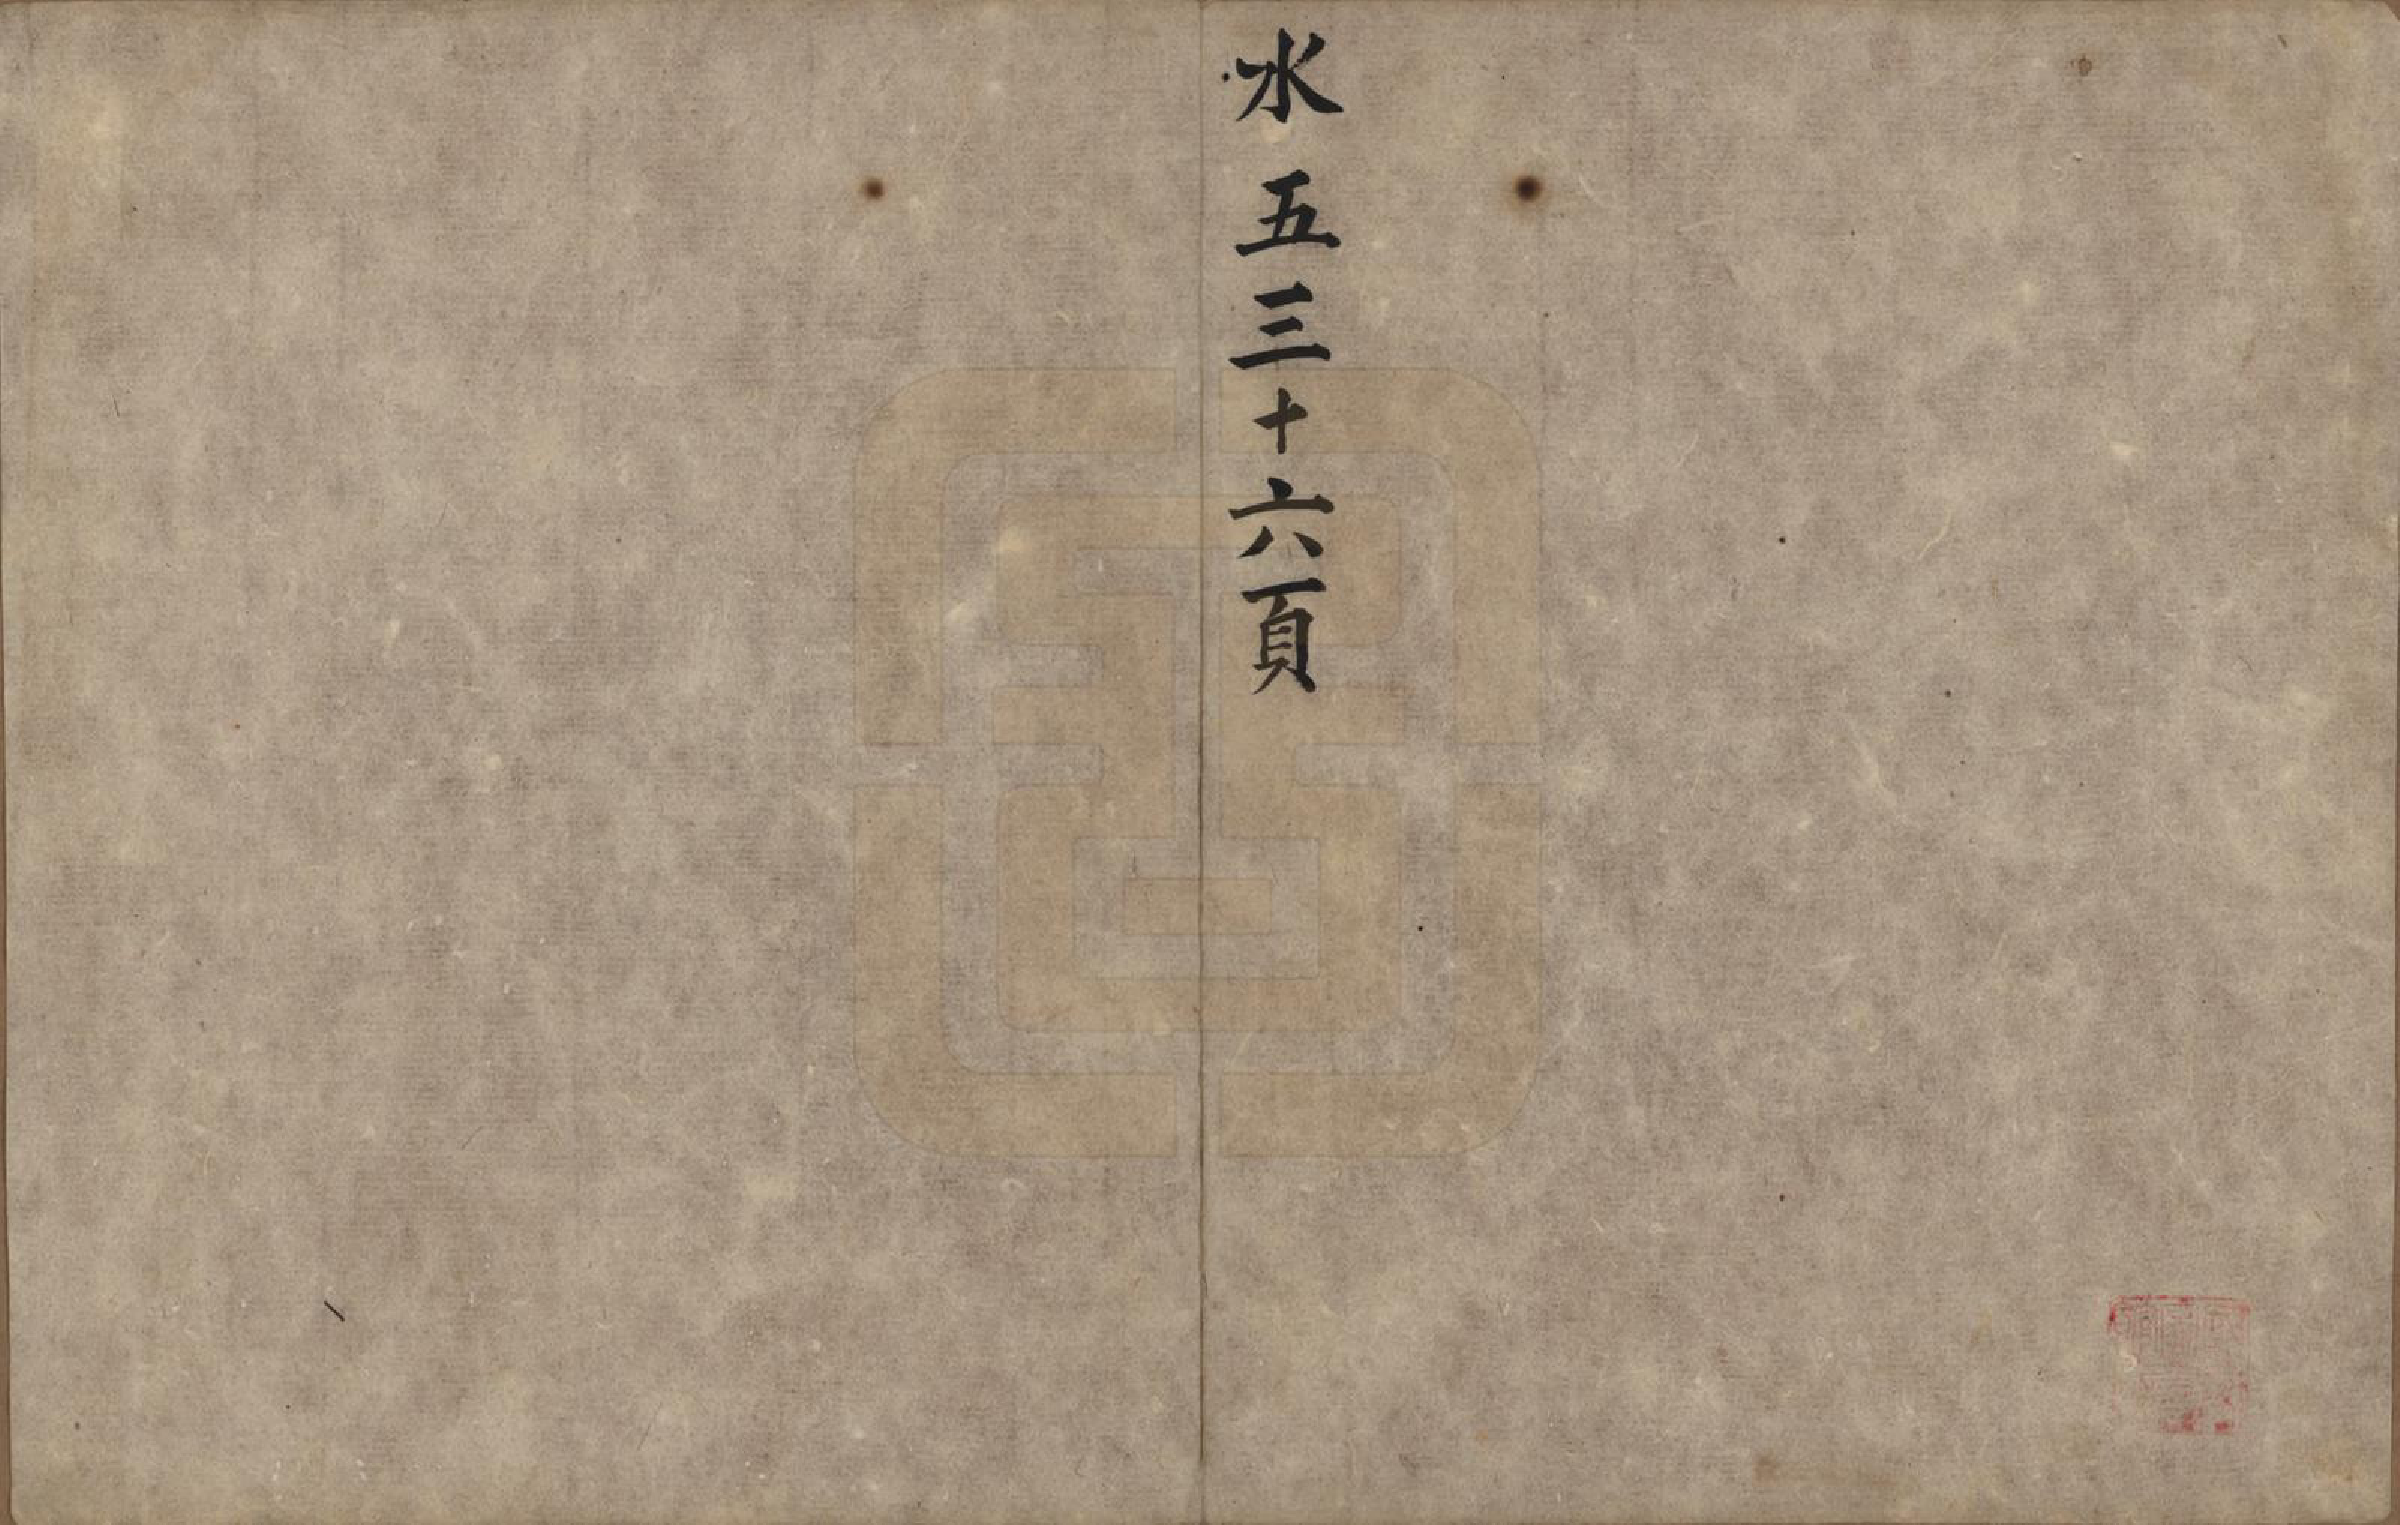 水五三十六頁